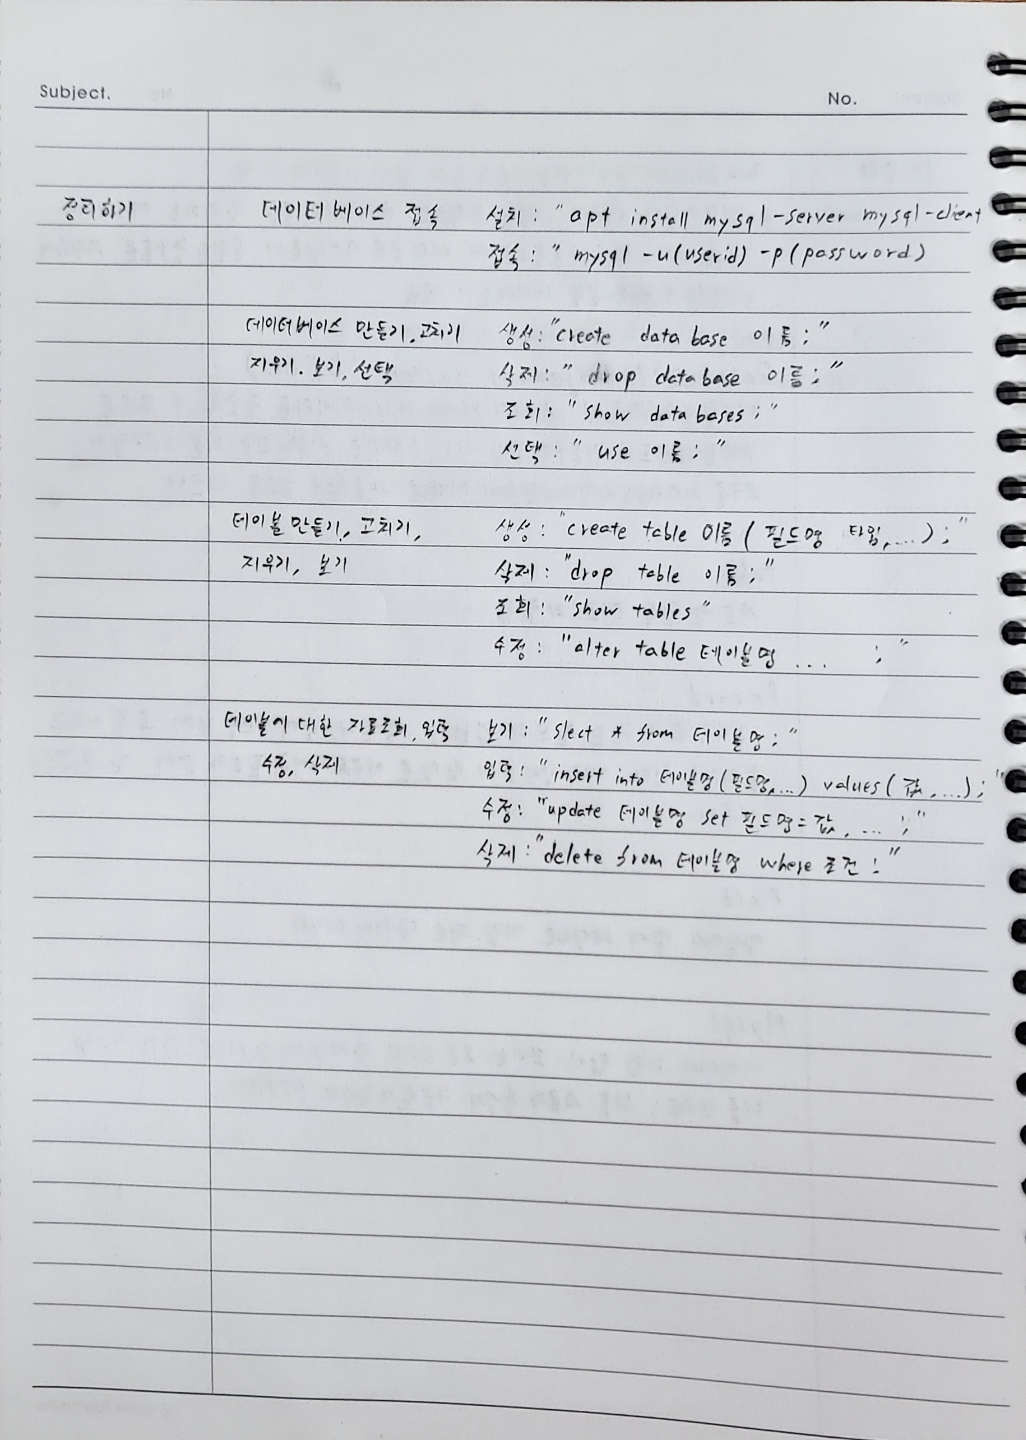 Subject.
No.
정리하기 데이터베이스 접속 설치 : " apt install mysql-server mysql-client
접속 : " mysql -u(userid) -p(password)
데이터베이스 만들기, 고치기 생성 : "create data base 이름 ; "
지우기. 보기, 선택 삭제 : " drop database 이름 ; "
조회 : " show databases ; "
선택 : " use 이름 ; "
테이블 만들기, 고치기, 생성 : "create table 이름 ( 필드명 타입, ... ) ; "
지우기, 보기 삭제 : "drop table 이름 ; "
조회 : "show tables "
수정 : "alter table 테이블명 ... ; "
테이블에 대한 자료조회, 입력 보기 : " slect * from 테이블명 ; "
수정, 삭제 입력 : " insert into 테이블명 (필드명, ...) values ( 값 , ...) ; "
수정 : "update 테이블명 set 필드명 = 값 , ... ; "
삭제 : "delete from 테이블명 where 조건 ; "